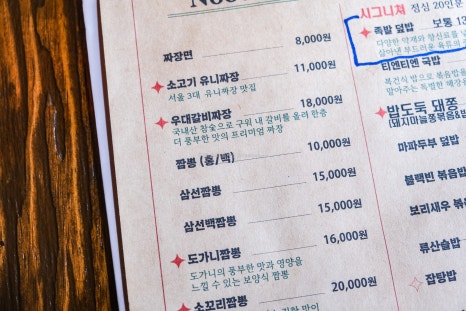 짜장면 8,000원
소고기 유니짜장 11,000원
서울 3대 유니짜장 맛집
우대갈비짜장 18,000원
국내산 참숯으로 구워 내 갈비를 올려 한층
더 풍부한 맛의 프리미엄 짜장
짬뽕 (홍/백) 10,000원
삼선짬뽕 15,000원
삼선백짬뽕 15,000원
도가니짬뽕 16,000원
도가니의 풍부한 맛과 영양을
느낄 수 있는 보양식 짬뽕
소꼬리짬뽕 20,000원
시그니쳐 점심 20인분
족발 덮밥 보통
다양한 약재와 향신료를
삶아낸 부드러운
티엔티엔 국밥
복건식 밥으로 볶음밥
말아주는 특별한
밥도둑 돼쫑
(돼지마늘쫑볶음&밥
마파두부 덮밥
블랙빈 볶음밥
보리새우 볶음
류산슬밥
잡탕밥